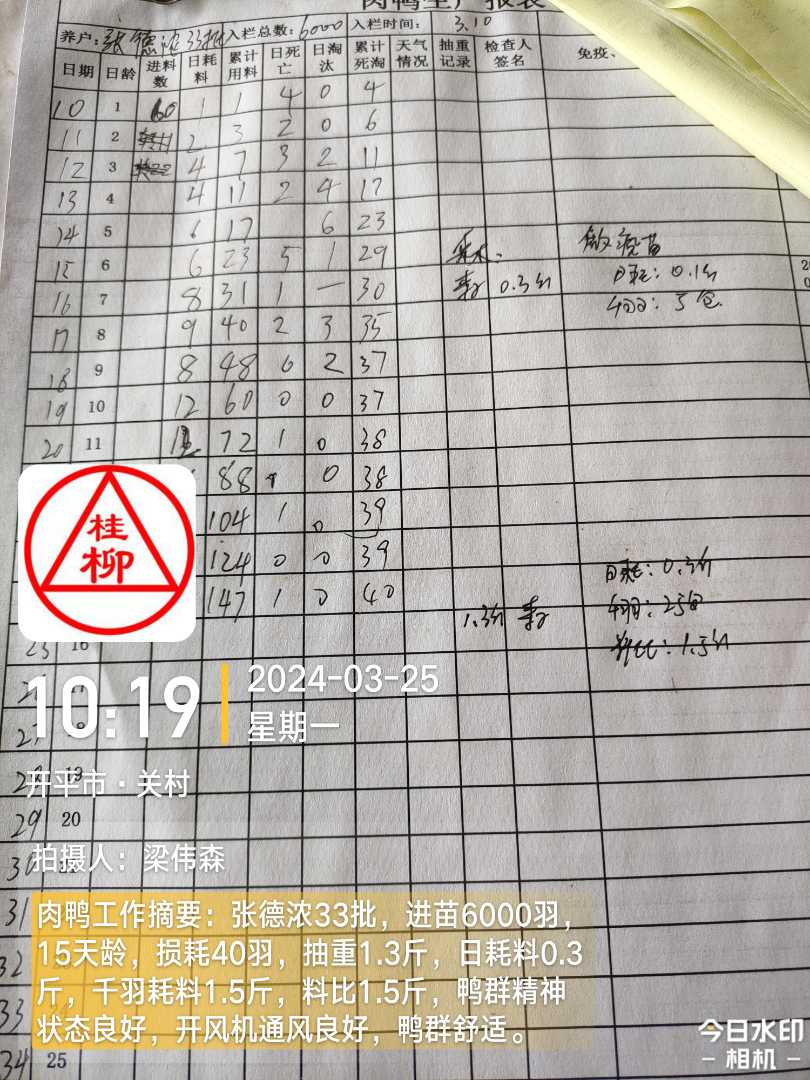 肉鸭生产报表
养户: 张德浓33批 入栏总数: 6000 入栏时间: 3.10
日期 日龄 进料数 日耗料 累计用料 日死亡 日淘汰 累计死淘 天气情况 抽重记录 检查人签名 免疫、
10 1 60 1 1 4 0 4
11 2 2 3 2 0 6
12 3 4 7 3 2 11
13 4 4 11 2 4 17
14 5 6 17 6 23
15 6 6 23 5 1 29
16 7 8 31 1 一 30 0.3斤 日耗: 0.1斤
17 8 9 40 2 3 35
18 9 8 48 0 2 37
19 10 12 60 0 0 37
20 11 12 72 1 0 38
88 0 38
104 1 0 39
124 0 0 39
147 1 0 40 1.3斤
日耗: 0.3斤
料比: 1.5斤
16
17
29 20
30
31
32
33
34 25
桂柳
10:19
2024-03-25
星期一
开平市·关村
拍摄人: 梁伟森
肉鸭工作摘要: 张德浓33批，进苗6000羽，
15天龄，损耗40羽，抽重1.3斤，日耗料0.3
斤，千羽耗料1.5斤，料比1.5斤，鸭群精神
状态良好，开风机通风良好，鸭群舒适。
今日水印
相机